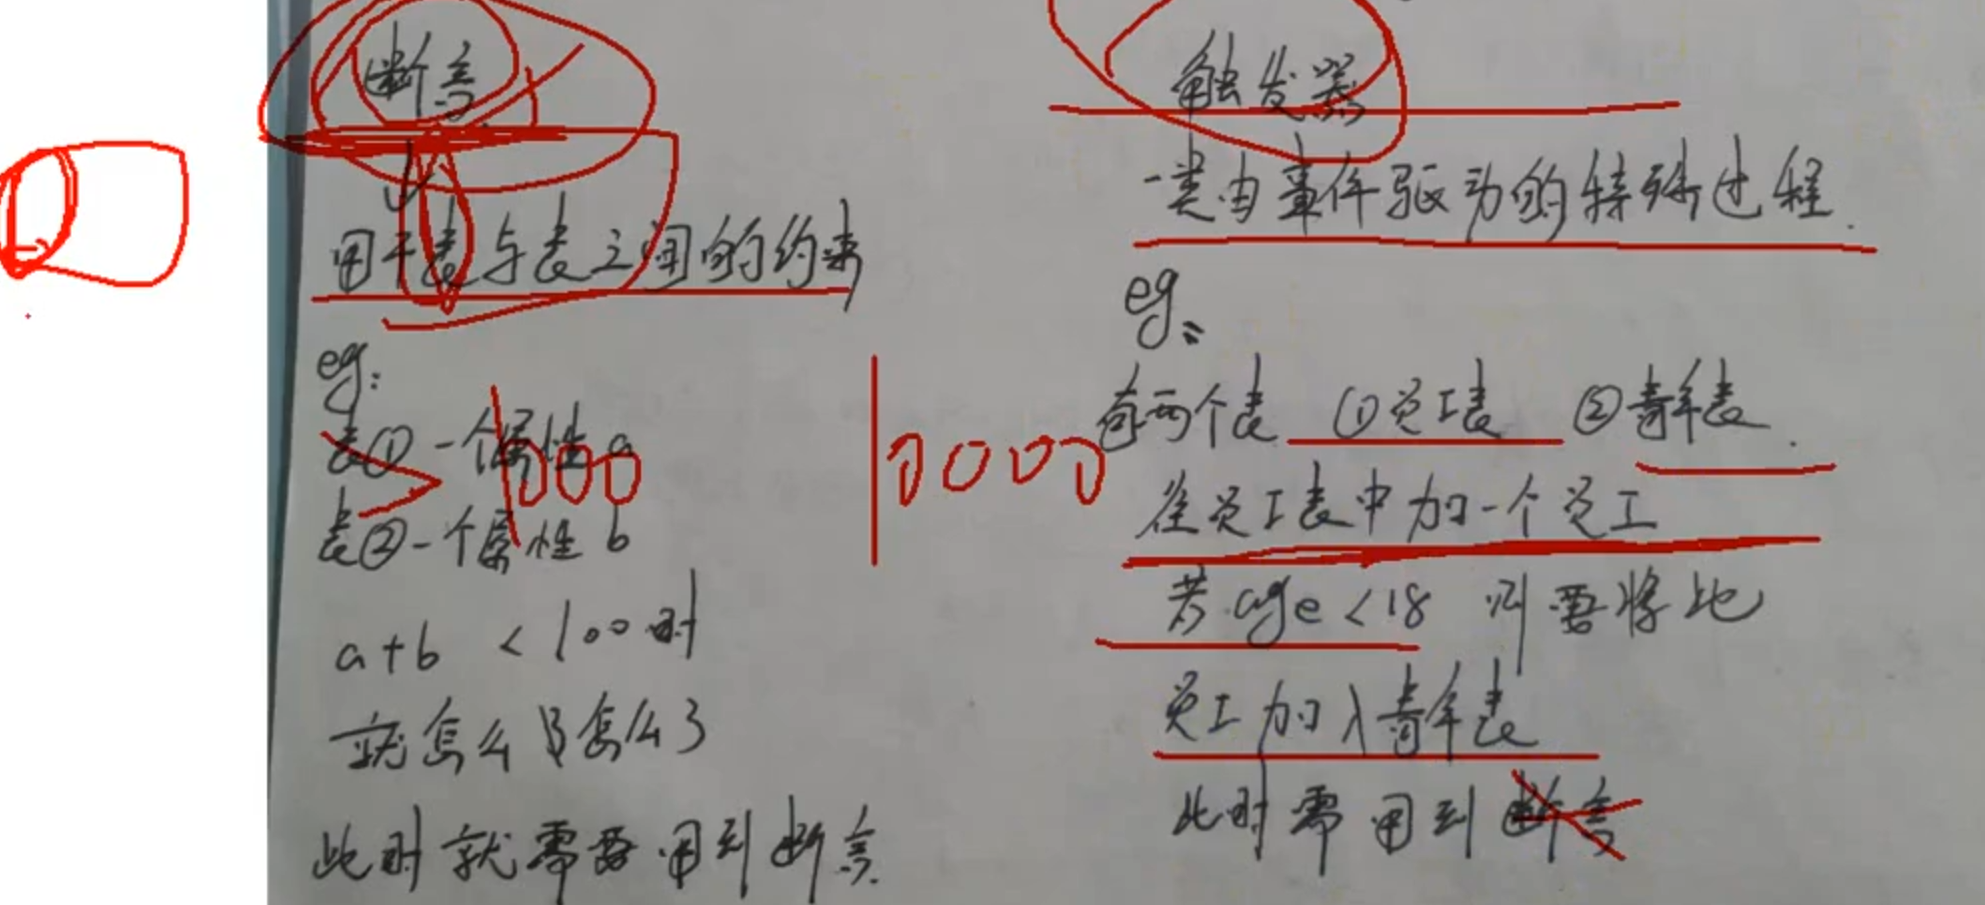 断言
用于表与表之间的约束
eg:
表① 一个属性 a
表② 一个属性 b
a+b < 100时
就怎么怎么了
此时就需要用到断言.
1000
10000
触发器
一类由事件驱动的特殊过程.
eg:
有两个表 ①员工表 ②青年表.
往员工表中加一个员工
若 age < 18 则要将此
员工加入青年表
此时需用到断言